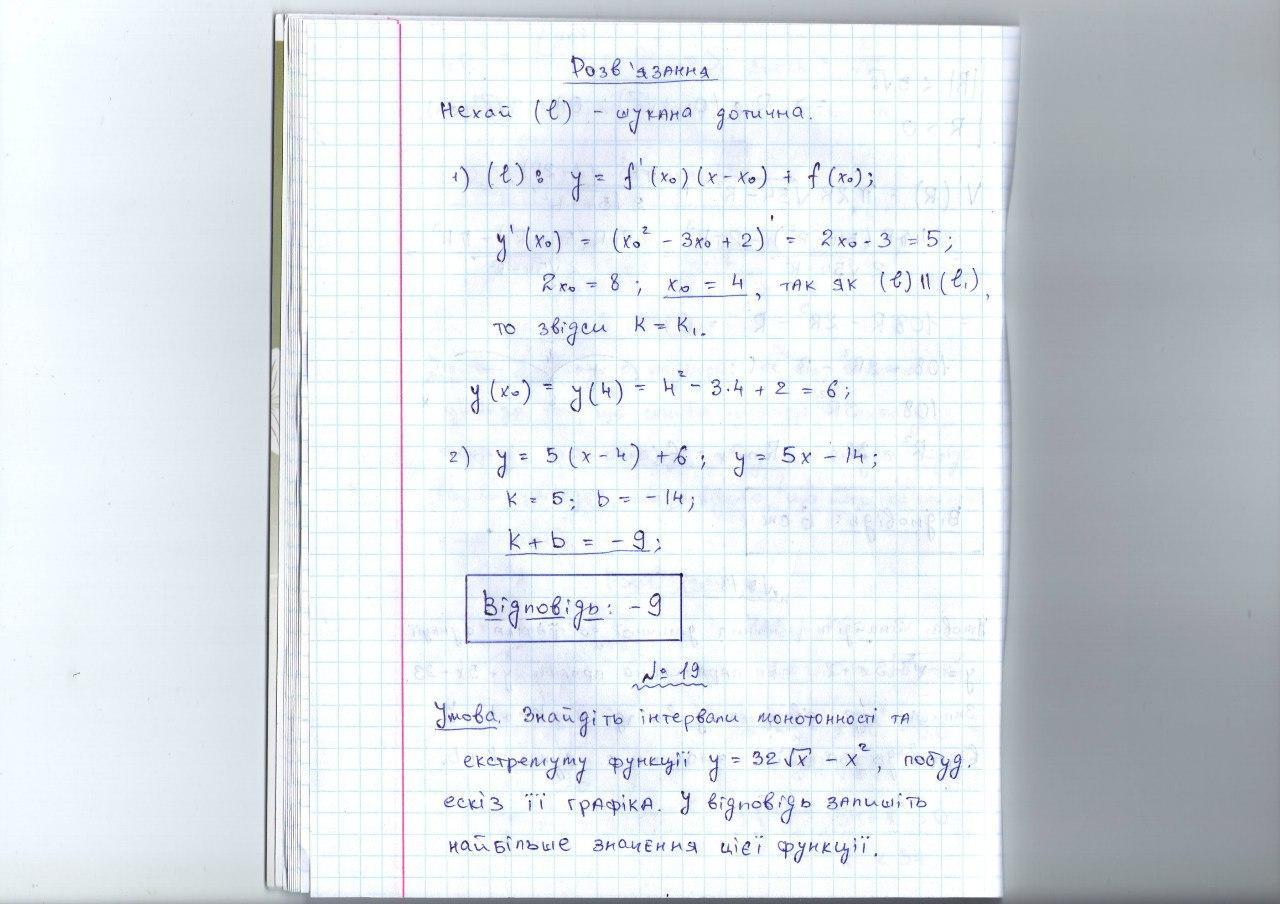 Розв'язання
Нехай (ℓ) - шукана дотична.
1) (ℓ): y = f'(x₀)(x-x₀) + f(x₀);
y'(x₀) = (x₀² - 3x₀ + 2)' = 2x₀ - 3 = 5;
2x₀ = 8; x₀ = 4, так як (ℓ)||(ℓ₁),
то звідси K = K₁.
y(x₀) = y(4) = 4² - 3·4 + 2 = 6;
2) y = 5(x-4) + 6; y = 5x - 14;
K = 5; b = -14;
K + b = -9;
Відповідь: -9
№ 19
Умова. Знайдіть інтервали монотонності та
екстремуму функції y = 32√x - x², побуд.
ескіз її графіка. У відповідь запишіть
найбільше значення цієї функції.